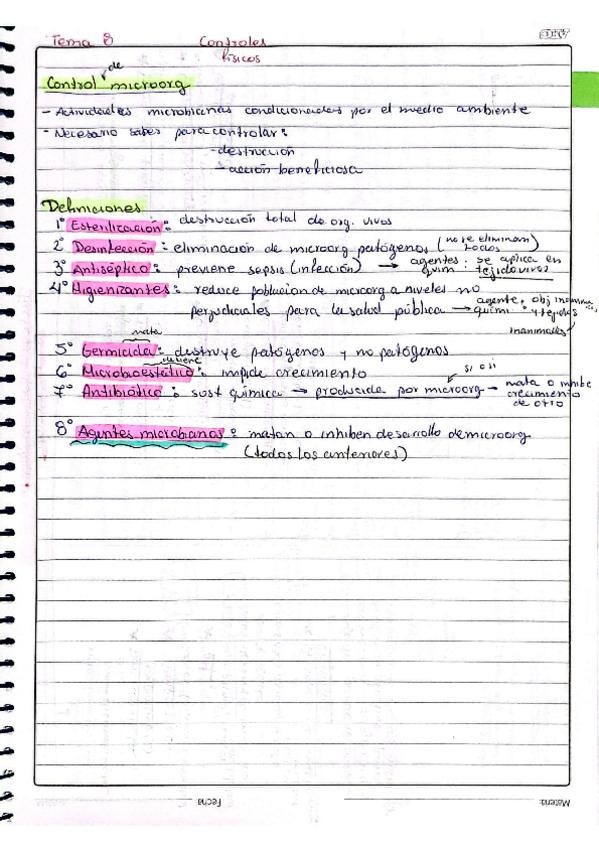 Tema 8 Controles
físicos
de
Control microorg
- Actividades microbianas condicionadas por el medio ambiente
- Necesario saber para controlar:
- destrucción
- acción beneficiosa
Definiciones
1° Esterilización: destrucción total de org. vivos
2° Desinfección: eliminación de microorg patógenos (no se eliminan todos)
3° Antiséptico: previene sepsis (infección) → agentes quim : se aplica en tejido vivos
4° Higienizantes: reduce poblacion de microorg a niveles no
perjudiciales para la salud pública → agente quimi : obj
inanimales
mata
5° Germicida: destruye patógenos y no patógenos
detiene
6° Microbioestático: impide crecimiento
si o si
7° Antibiótico: sust química → producida por microorg → mata o inhibe
crecimiento
de otro
8° Agentes microbianos: matan o inhiben desarrollo de microorg
(todos los anteriores)
Fecha
Materia: